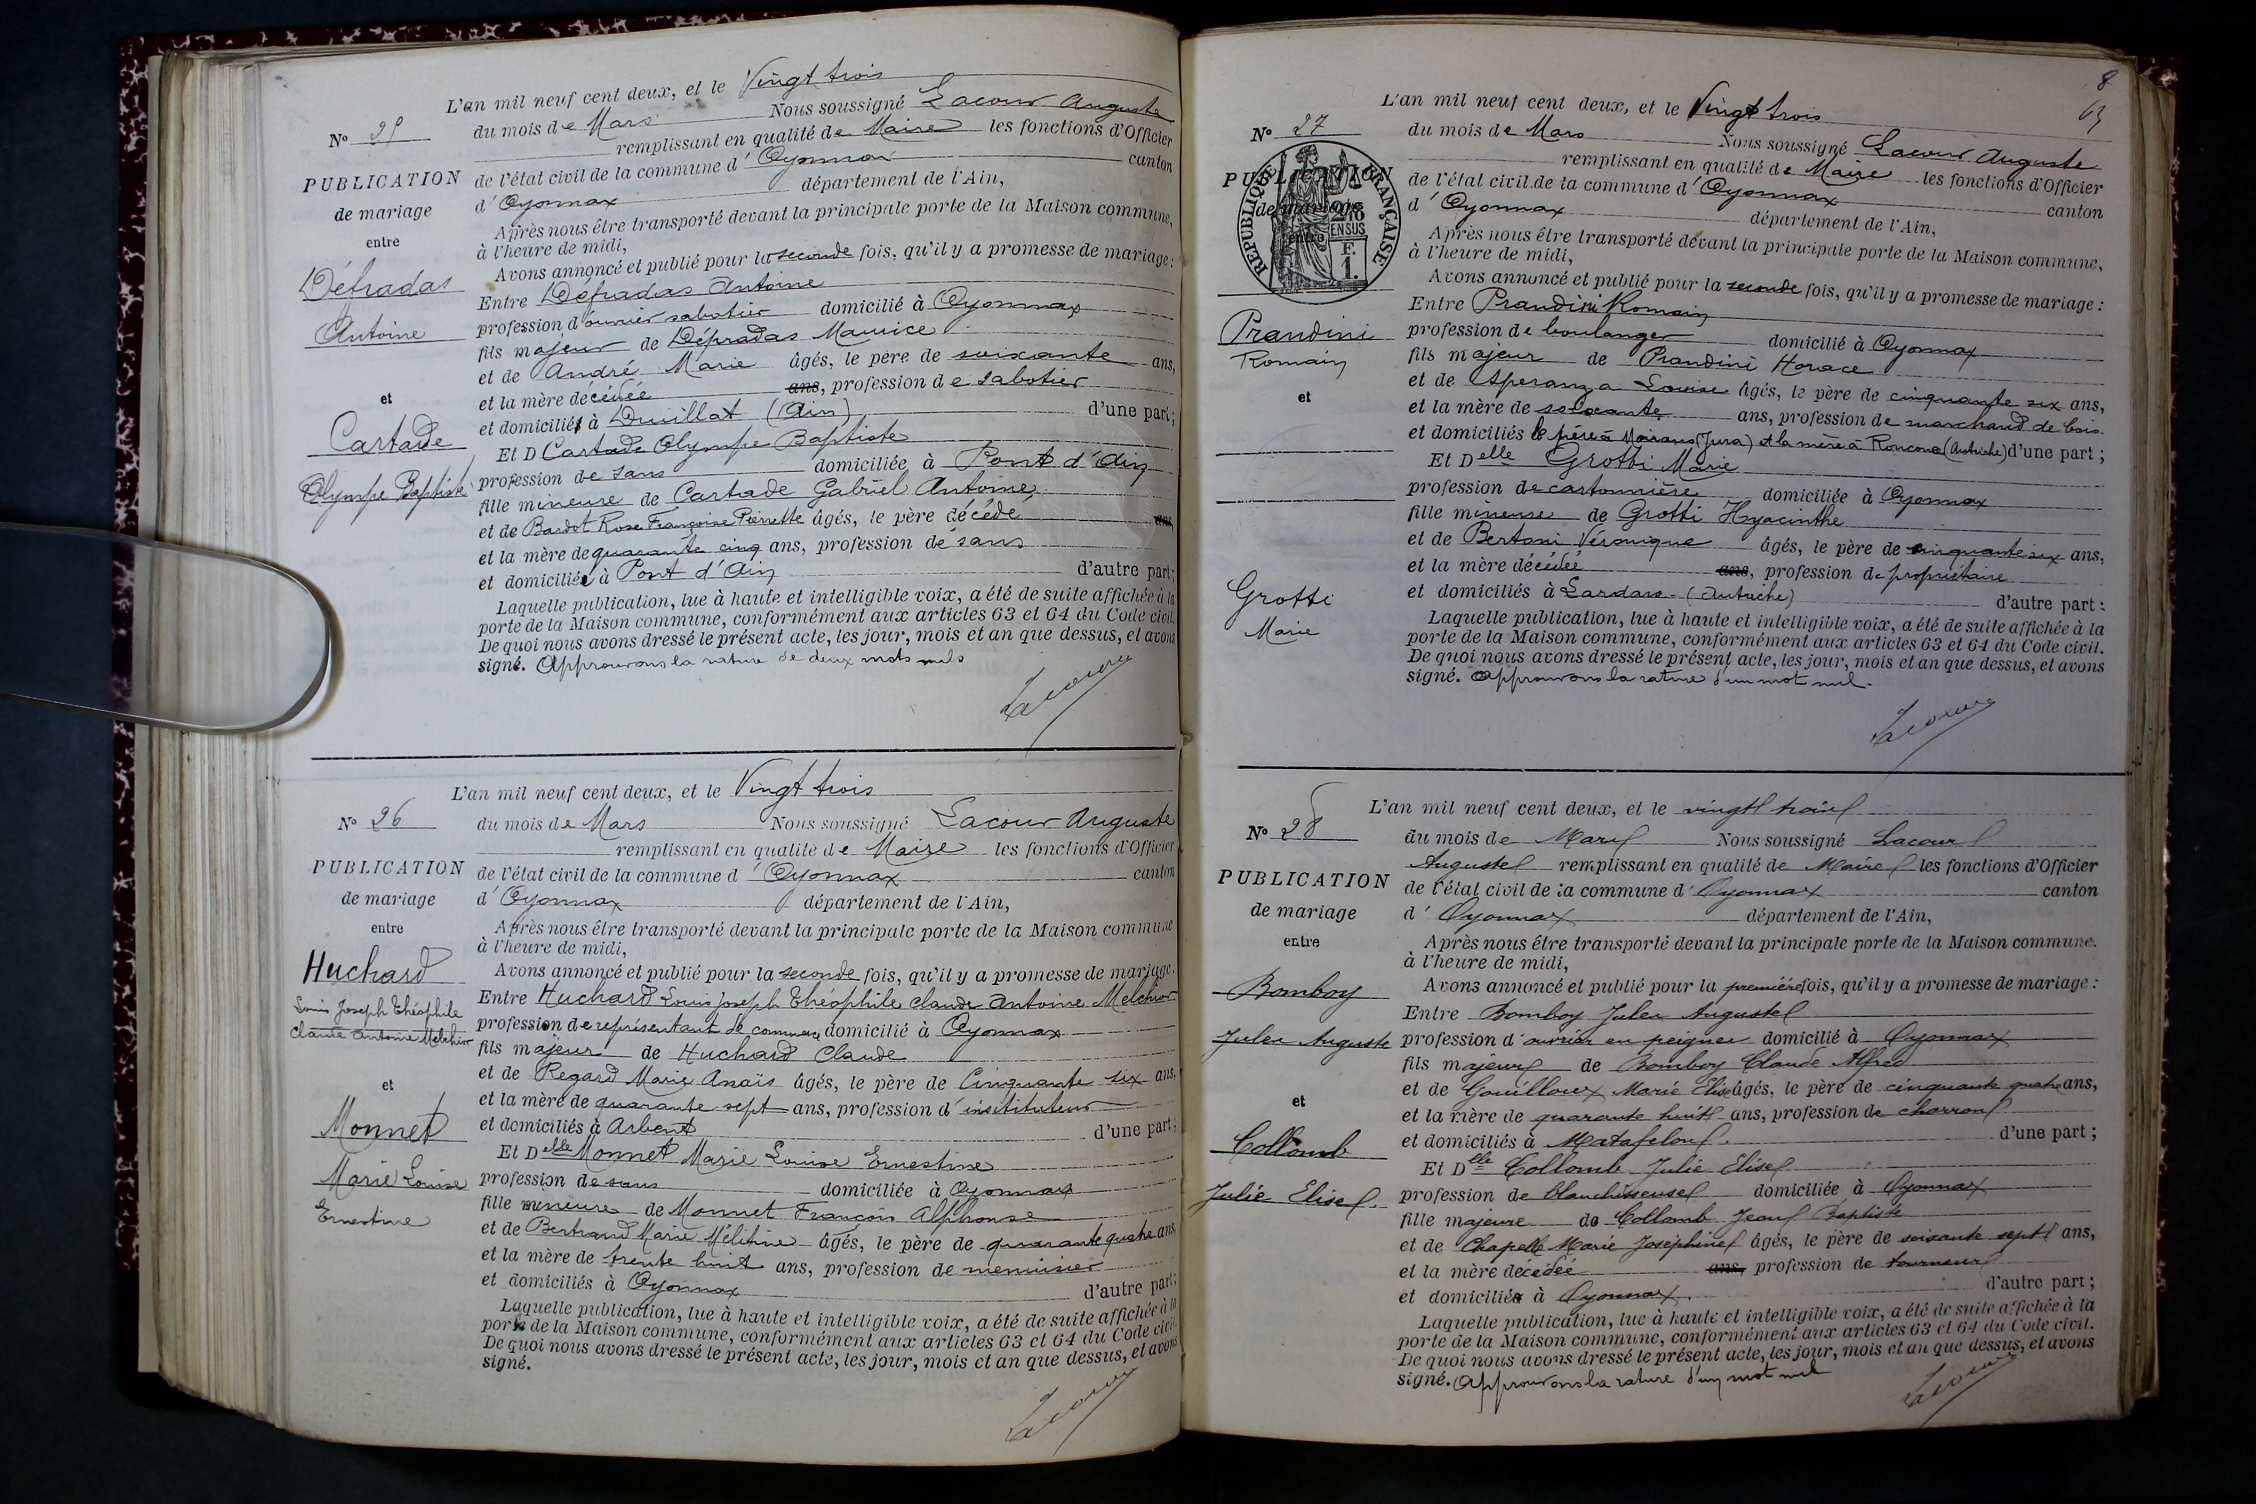 L'an mil neuf cent deux, et le Vingt trois
N° 25 du mois de Mars Nous soussigné Lacour Auguste
remplissant en qualité de Maire les fonctions d'Officier
PUBLICATION de l'état civil de la commune d'Oyonnax canton
d'Oyonnax département de l'Ain,
de mariage Après nous être transporté devant la principale porte de la Maison commune,
entre à l'heure de midi,
Avons annoncé et publié pour la seconde fois, qu'il y a promesse de mariage:
Défradas Entre Défradas Antoine
Antoine profession d'ouvrier sabotier domicilié à Oyonnax
fils majeur de Défradas Maurice
et de André Marie âgés, le père de soixante ans,
et et la mère décédée ans, profession de sabotier
et domiciliés à Druillat (Ain) d'une part;
Cartade Et D Cartade Olympe Baptiste
Olympe Baptiste profession de sans domiciliée à Pont d'Ain
fille mineure de Cartade Gabriel Antoine
et de Bardot Rose Françoise Pierrette âgés, le père décédé ans
et la mère de quarante cinq ans, profession de sans
et domiciliée à Pont d'Ain d'autre part;
Laquelle publication, lue à haute et intelligible voix, a été de suite affichée à la
porte de la Maison commune, conformément aux articles 63 et 64 du Code civil.
De quoi nous avons dressé le présent acte, les jour, mois et an que dessus, et avons
signé. Approuvons la rature de deux mots nuls
Lacour
L'an mil neuf cent deux, et le Vingt trois
N° 26 du mois de Mars Nous soussigné Lacour Auguste
remplissant en qualité de Maire les fonctions d'Officier
PUBLICATION de l'état civil de la commune d'Oyonnax canton
de mariage d'Oyonnax département de l'Ain,
entre Après nous être transporté devant la principale porte de la Maison commune
à l'heure de midi,
Huchard Avons annoncé et publié pour la seconde fois, qu'il y a promesse de mariage.
Louis Joseph Théophile Entre Huchard Louis Joseph Théophile Claude Antoine Melchior
Claude Antoine Melchior profession de représentant de commerce domicilié à Oyonnax
fils majeur de Huchard Claude
et et de Regard Marie Anaïs âgés, le père de Cinquante six ans,
et la mère de quarante sept ans, profession d'instituteur
Monnet et domiciliés à Arbent d'une part;
Et Delle Monnet Marie Louise Ernestine
Marie Louise profession de sans domiciliée à Oyonnax
Ernestine fille mineure de Monnet François Alphonse
et de Bertrand Marie Mélitine âgés, le père de quarante quatre ans,
et la mère de trente huit ans, profession de menuisier
et domiciliés à Oyonnax d'autre part;
Laquelle publication, lue à haute et intelligible voix, a été de suite affichée à la
porte de la Maison commune, conformément aux articles 63 et 64 du Code civil.
De quoi nous avons dressé le présent acte, les jour, mois et an que dessus, et avons
signé.
Lacour
8
63
L'an mil neuf cent deux, et le Vingt trois
N° 27 du mois de Mars Nous soussigné Lacour Auguste
remplissant en qualité de Maire les fonctions d'Officier
PUBLICATION de l'état civil de la commune d'Oyonnax canton
de mariage d'Oyonnax département de l'Ain,
entre Après nous être transporté devant la principale porte de la Maison commune,
à l'heure de midi,
REPUBLIQUE FRANÇAISE
EN SUS
F.
1.
Avons annoncé et publié pour la seconde fois, qu'il y a promesse de mariage:
Entre Prandini Romain
Prandini profession de boulanger domicilié à Oyonnax
Romain fils majeur de Prandini Horace
et et de Speranza Louise âgés, le père de cinquante six ans,
et la mère de soixante ans, profession de marchand de bois
et domiciliés le père à Moirans (Jura) et la mère à Roncone (Autriche) d'une part;
Et Delle Grotti Marie
profession de cartonnière domiciliée à Oyonnax
fille mineure de Grotti Hyacinthe
et de Bertoni Véronique âgés, le père de cinquante six ans,
et la mère décédée ans, profession de propriétaire
Grotti et domiciliés à Lardaro (Autriche) d'autre part:
Marie Laquelle publication, lue à haute et intelligible voix, a été de suite affichée à la
porte de la Maison commune, conformément aux articles 63 et 64 du Code civil.
De quoi nous avons dressé le présent acte, les jour, mois et an que dessus, et avons
signé. Approuvons la rature d'un mot nul.
Lacour
L'an mil neuf cent deux, et le vingt trois
N° 28 du mois de Mars Nous soussigné Lacour
Auguste remplissant en qualité de Maire les fonctions d'Officier
PUBLICATION de l'état civil de la commune d'Oyonnax canton
de mariage d'Oyonnax département de l'Ain,
entre Après nous être transporté devant la principale porte de la Maison commune.
à l'heure de midi,
Bomboy Avons annoncé et publié pour la première fois, qu'il y a promesse de mariage:
Entre Bomboy Jules Auguste
Jules Auguste profession d'ouvrier en peignes domicilié à Oyonnax
fils majeur de Bomboy Claude Alfred
et et de Gouilloux Marie Elise âgés, le père de cinquante quatre ans,
et la mère de quarante huit ans, profession de charron
Collomb et domiciliés à Matafelon d'une part;
Et Dlle Collomb Julie Elise
Julie Elise profession de blanchisseuse domiciliée à Oyonnax
fille majeure de Collomb Jean Baptiste
et de Chapelle Marie Joséphine âgés, le père de soixante sept ans,
et la mère décédée ans, profession de tourneur
et domiciliés à Oyonnax d'autre part;
Laquelle publication, lue à haute et intelligible voix, a été de suite affichée à la
porte de la Maison commune, conformément aux articles 63 et 64 du Code civil.
De quoi nous avons dressé le présent acte, les jour, mois et an que dessus, et avons
signé. Approuvons la rature d'un mot nul
Lacour